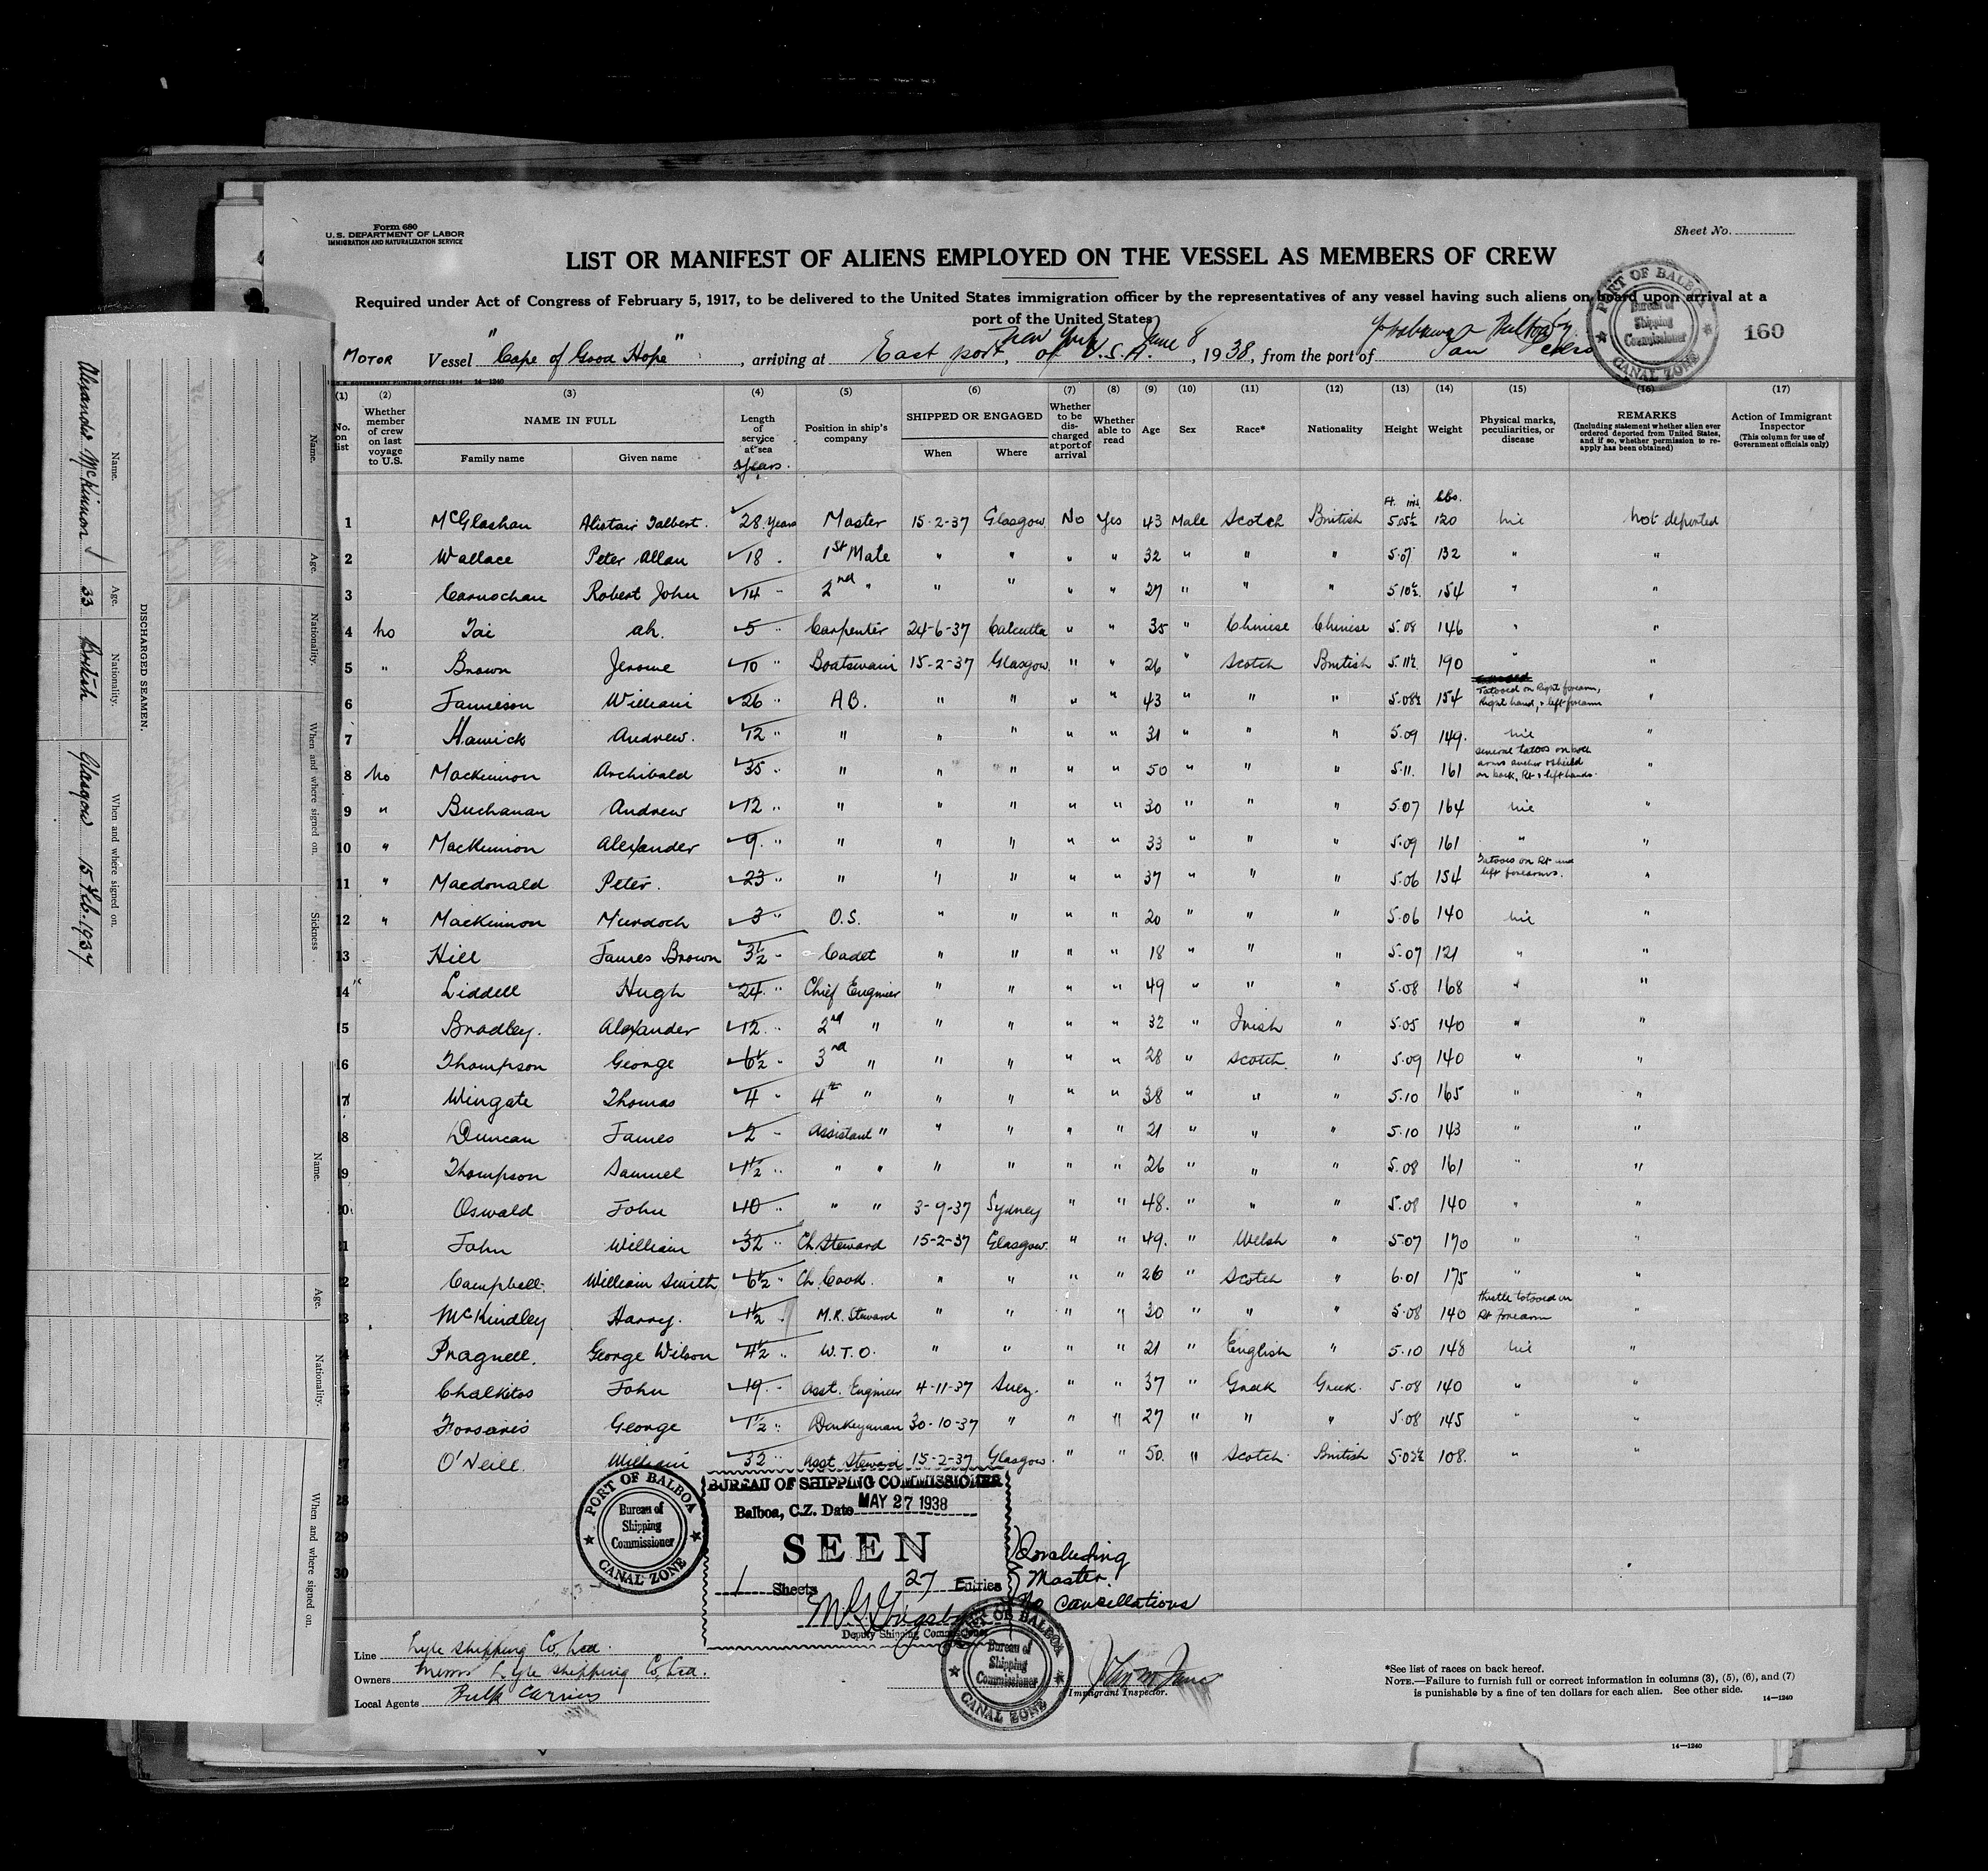 Form 680
U.S. DEPARTMENT OF LABOR
IMMIGRATION AND NATURALIZATION SERVICE
Sheet No.
LIST OR MANIFEST OF ALIENS EMPLOYED ON THE VESSEL AS MEMBERS OF CREW
Required under Act of Congress of February 5, 1917, to be delivered to the United States immigration officer by the representatives of any vessel having such aliens on board upon arrival at a
port of the United States
PORT OF BALBOA Bureau of Shipping Commissioner CANAL ZONE
160
New York June 8 Yokohama
MOTOR Vessel "Cape of Good Hope", arriving at East port, of U.S.A., 1938, from the port of San Pedro
14—1240
(1) (2) (3) (4) (5) (6) (7) (8) (9) (10) (11) (12) (13) (14) (15) (16) (17)
No. on list
Whether member of crew on last voyage to U.S.
NAME IN FULL
Family name Given name
Length of service at sea years.
Position in ship's company
SHIPPED OR ENGAGED
When Where
Whether to be discharged at port of arrival
Whether able to read
Age Sex Race* Nationality Height Weight
Physical marks, peculiarities, or disease
REMARKS
(Including statement whether alien ever ordered deported from United States, and if so, whether permission to reapply has been obtained)
Action of Immigrant Inspector
(This column for use of Government officials only)
Ft. ins. lbs.
1 McGlashan Alistair Talbert. 28 Years Master 15-2-37 Glasgow No Yes 43 Male Scotch British 5.05½ 120 nil not deported
2 Wallace Peter Allan 18 1st Mate " " " " 32 " " " 5.07 132 " "
3 Carnochan Robert John 14 " 2nd " " " " " 27 " " " 5.10½ 154 " "
4 No Tai ah. 5 " Carpenter 24-6-37 Calcutta " " 35 " Chinese Chinese 5.08 146 " "
5 " Brown Jerome 10 " Boatswain 15-2-37 Glasgow " " 26 " Scotch British 5.11½ 190 " "
6 Jamieson William 26 " A.B. " " " " 43 " " " 5.08½ 154 Tatooed on Right forearm, Right hand, & left forearm "
7 Hawick Andrew. 12 " " " " " " 31 " " " 5.09 149. nil "
8 No Mackinnon Archibald 35 " " " " " " 50 " " " 5.11. 161 several tatoos on both arms anchor & shield on back, Rt & left hands. "
9 " Buchanan Andrew 12 " " " " " " 30 " " " 5.07 164 nil "
10 " MacKinnon Alexander 9 " " " " " " 33 " " " 5.09 161 " "
11 " Macdonald Peter. 23 " " " " " " 37 " " " 5.06 154 Tatooes on Rt and left forearms. "
12 " MacKinnon Murdoch 3 " O.S. " " " " 20 " " " 5.06 140 nil "
13 Hill James Brown 3½ " Cadet " " " " 18 " " " 5.07 121 " "
14 Liddell Hugh 24 " Chief Engineer " " " " 49 " " " 5.08 168 " "
15 Bradley. Alexander 12 " 2nd " " " " " 32 " Irish " 5.05 140 " "
16 Thompson George 6½ " 3rd " " " " " 28 " Scotch " 5.09 140 " "
17 Wingate Thomas 4 " 4th " " " " " 38 " " " 5.10 165 " "
18 Duncan James 2 " Assistant " " " " " 21 " " " 5.10 143 " "
19 Thompson Samuel 1½ " " " " " " " 26 " " " 5.08 161 " "
20 Oswald John 10 " " " 3-9-37 Sydney " " 48. " " " 5.08 140 " "
21 John William 32 " Ch. Steward 15-2-37 Glasgow. " " 49. " Welsh " 5.07 170 " "
22 Campbell. William Smith 6½ " Ch. Cook. " " " " 26 " Scotch " 6.01 175 " "
23 McKindley Harry. 1½ " M.R. Steward " " " " 30 " " " 5.08 140 thistle tatooed on Rt forearm "
24 Pragnell. George Wilson 4½ " W.T.O. " " " " 21 " English " 5.10 148 nil "
25 Chalkitos John 19 " Asst. Engineer 4-11-37 Suez. " " 37 " Greek Greek. 5.08 140 " "
26 Forsaris George 1½ " Donkeyman 30-10-37 " " " 27 " " " 5.08 145 " "
27 O'Neill. William 32 " Asst Steward 15-2-37 Glasgow. " " 50. " Scotch British 5.02½ 108. " "
28
29
30
PORT OF BALBOA Bureau of Shipping Commissioner CANAL ZONE
BUREAU OF SHIPPING COMMISSIONER
Balboa, C.Z. Date MAY 27 1938
SEEN
1 Sheets 27 Entries
Deputy Shipping Commissioner
Including
Master.
No Cancellations
PORT OF BALBOA Bureau of Shipping Commissioner CANAL ZONE
Line Lyle Shipping Co, Ltd.
Owners Messrs Lyle Shipping Co, Ltd.
Local Agents Bulk Carriers
Immigrant Inspector.
*See list of races on back hereof.
NOTE.—Failure to furnish full or correct information in columns (3), (5), (6), and (7)
is punishable by a fine of ten dollars for each alien. See other side.
14—1240
14—1240
DISCHARGED SEAMEN.
Name. Age. Nationality. When and where signed on.
Alexander McKinnon 33 British Glasgow 15 Feb. 1937
Name. Age. Nationality. When and where signed on. Sickness
Name. Age. Nationality. When and where signed on.